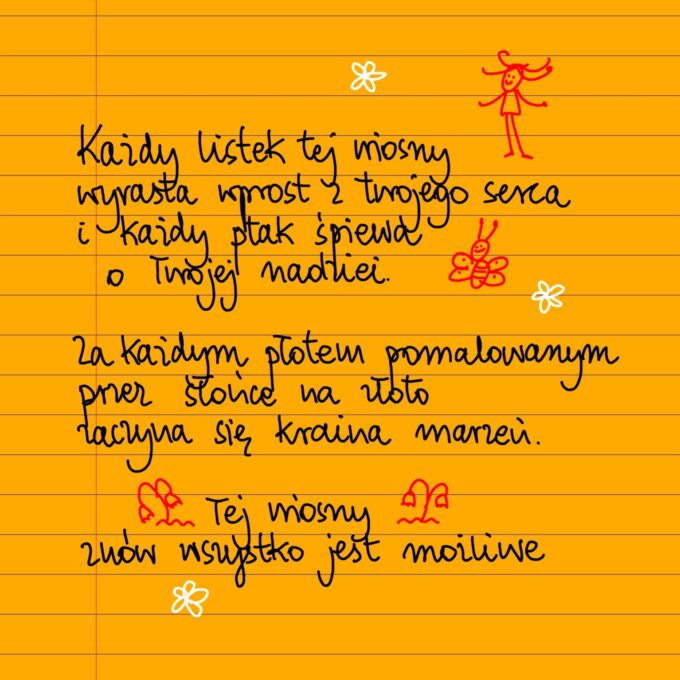 Każdy listek tej wiosny
wyrasta wprost z twojego serca
i każdy ptak śpiewa
o Twojej nadziei.
Za każdym płotem pomalowanym
przez słońce na złoto
zaczyna się kraina marzeń.
Tej wiosny
znów wszystko jest możliwe